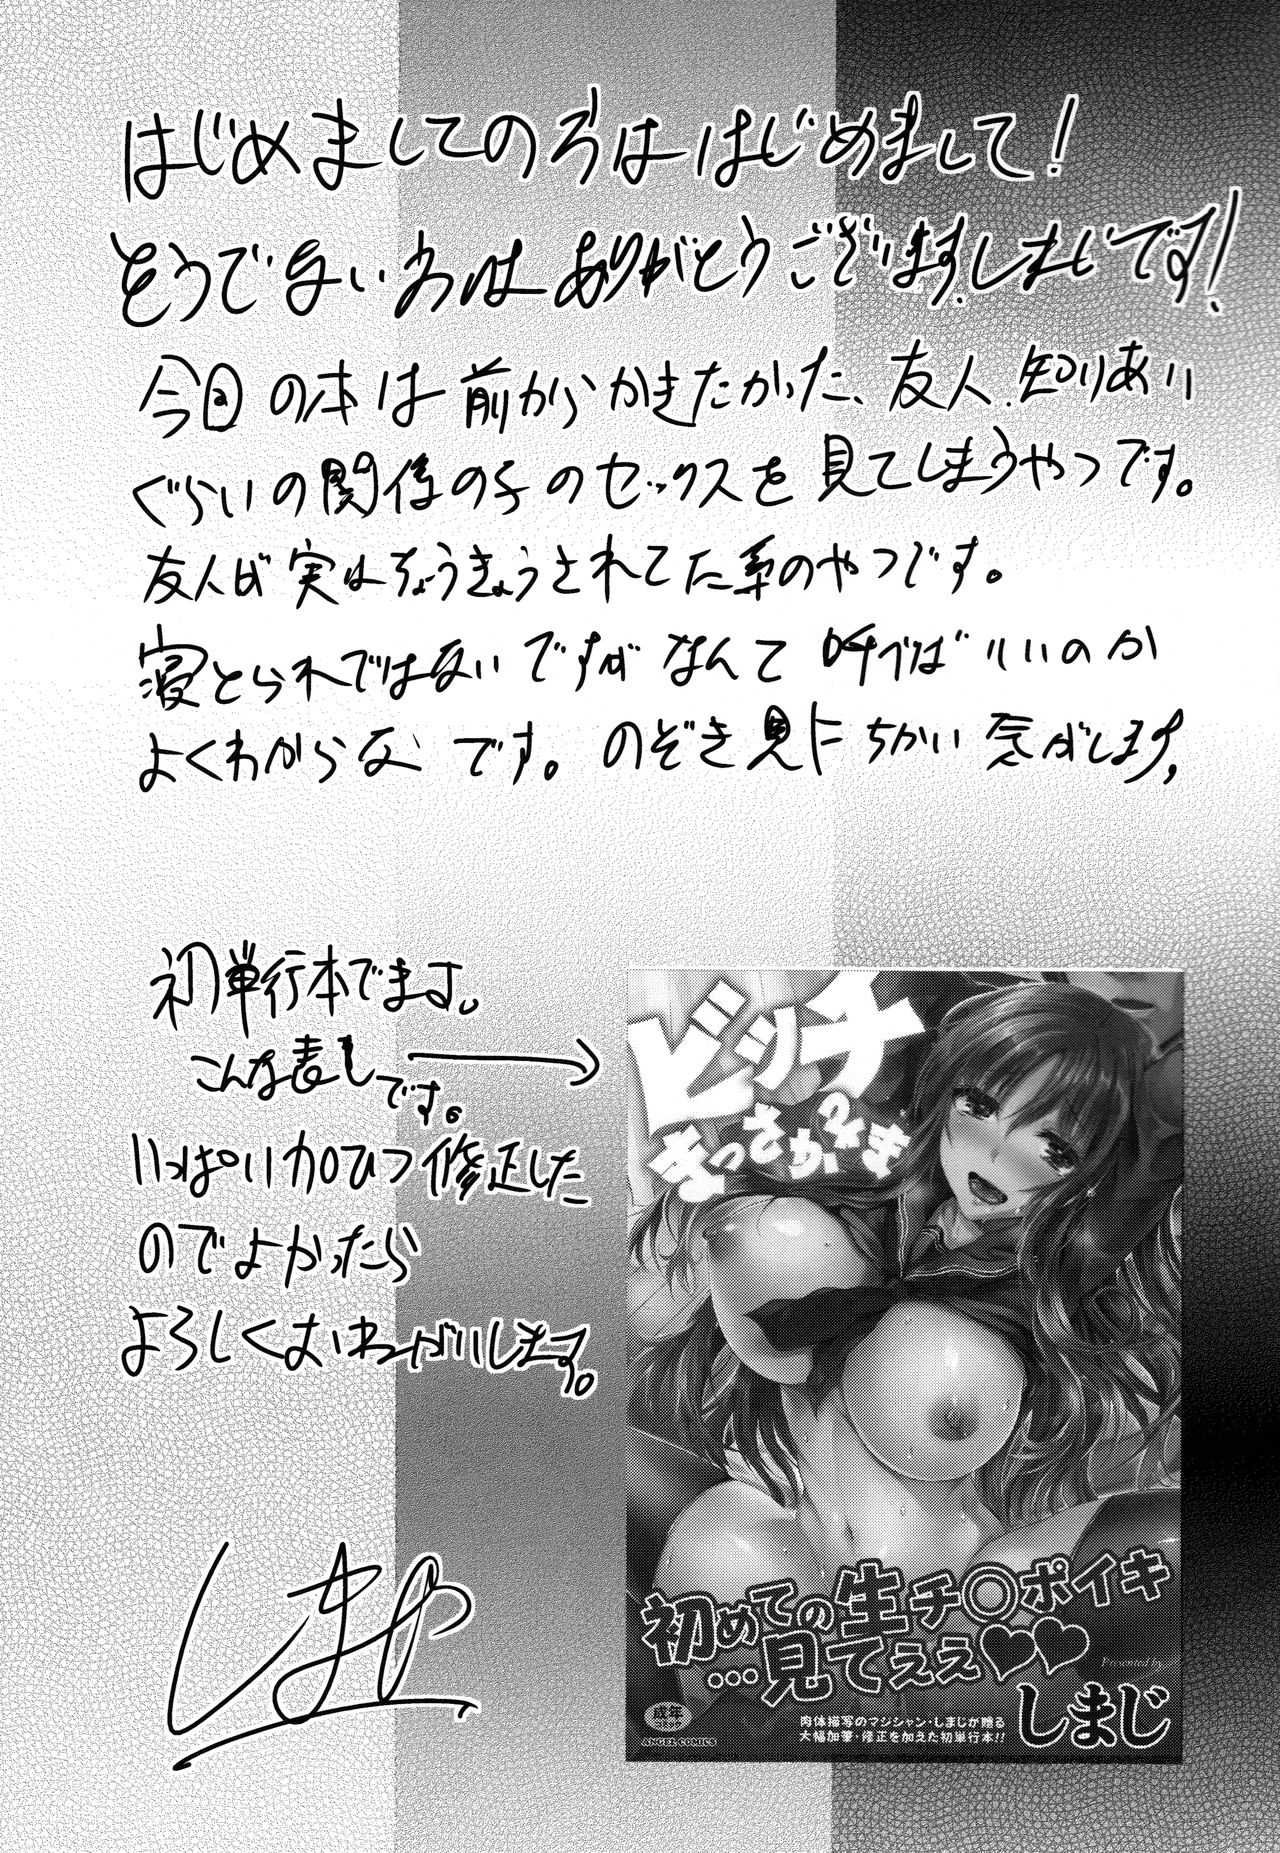 はじめましての方ははじめまして！
そうでない方はありがとうございます。しまじです！
今回の本は前からかきたかった、友人、知りあい
ぐらいの関係の子のセックスを見てしまうやつです。
友人が実はちょうきょうされてた系のやつです。
寝とられではないですがなんて呼べばいいのか
よくわからないです。のぞき見にちかい気がします。
初単行本でます。
こんな表しです。
いっぱい加ひつ修正した
のでよかったら
よろしくおねがいします。
ビッチ
まっさかさま
初めての生チ○ポイキ
…見てぇぇ♥♥
Presented by
しまじ
成年
コミック
ANGEL COMICS
肉体描写のマジシャン・しまじが贈る
大幅加筆・修正を加えた初単行本!!